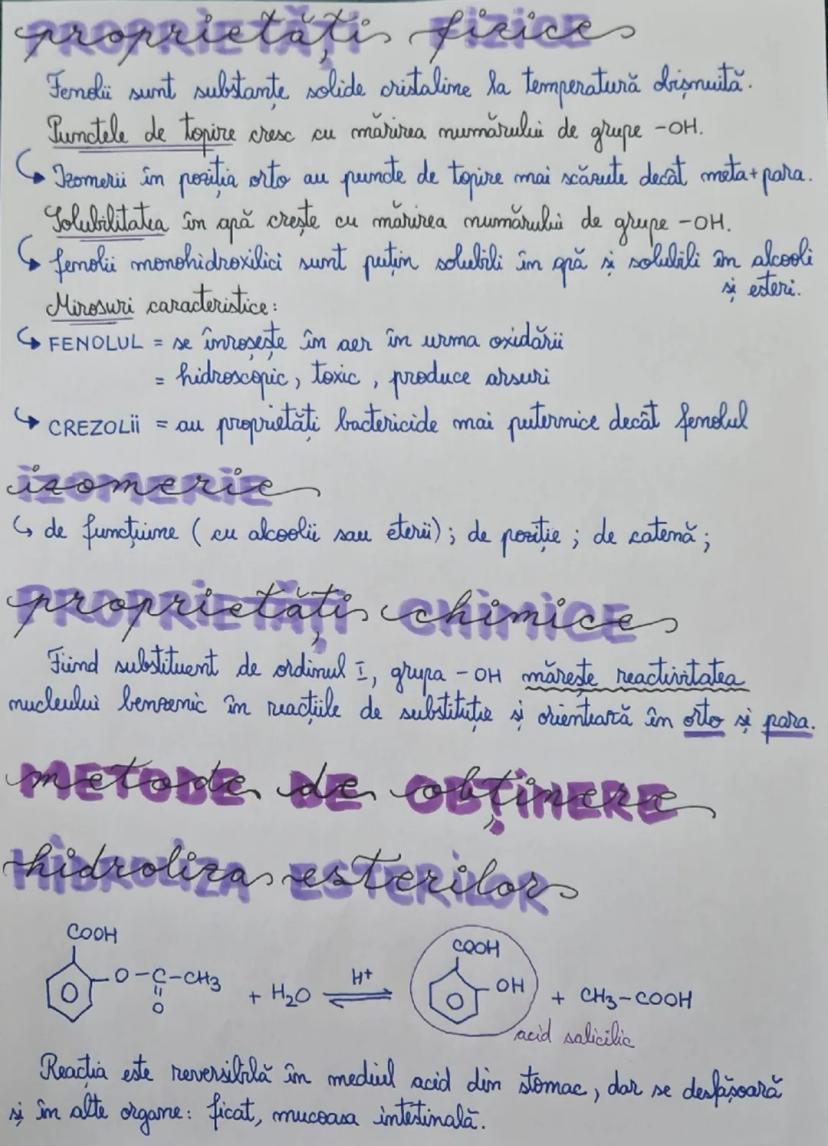 proprietăți fizice
Fenolii sunt substanțe solide cristaline la temperatură obișnuită.
Punctele de topire cresc cu mărirea numărului de grupe -OH.
↳ Izomerii în poziția orto au puncte de topire mai scăzute decât meta+para.
Solubilitatea în apă crește cu mărirea numărului de grupe -OH.
↳ fenolii monohidroxilici sunt puțin solubili în apă și solubili în alcooli
și esteri.
Mirosuri caracteristice:
↳ FENOLUL = se înroșește în aer în urma oxidării
= hidroscopic, toxic, produce arsuri
↳ CREZOLii = au proprietăți bactericide mai puternice decât fenolul
izomerie
↳ de funcțiune (cu alcoolii sau eterii); de poziție; de catenă;
proprietăți chimice
Fiind substituent de ordinul I, grupa -OH mărește reactivitatea
nucleului benzenic în reacțiile de substituție și orientează în orto și para.
metode de obținere
hidroliza esterilor
COOH COOH
O-C-CH3 + H2O H+ ⇌ OH + CH3-COOH
O
acid salicilic
Reacția este reversibilă în mediul acid din stomac, dar se desfășoară
și în alte organe: ficat, mucoasa intestinală.